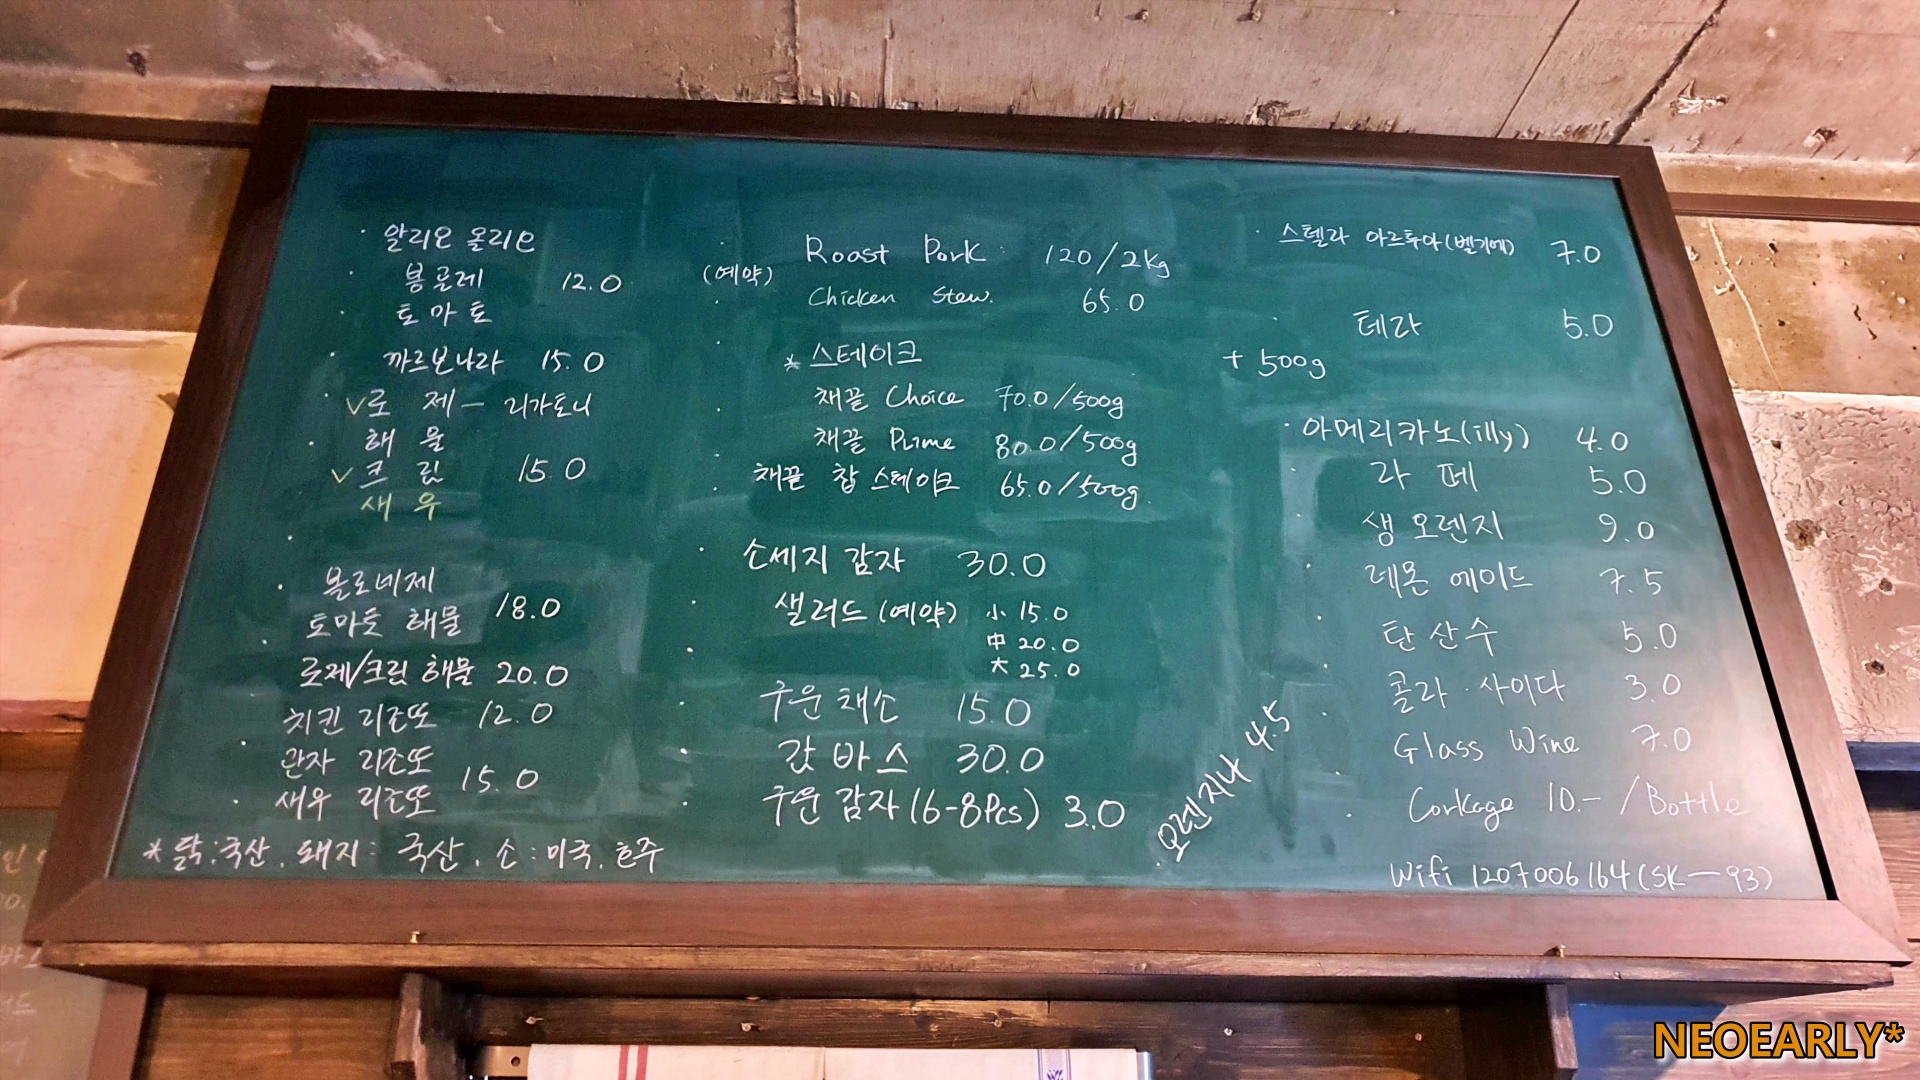 · 알리오 올리오
· 봉골레 12.0
· 토마토
· 까르보나라 15.0
· V로제 - 리가토니
· 해물
V크림 15.0
새우
· 볼로네제
토마토 해물 18.0
· 로제/크림 해물 20.0
치킨 리조또 12.0
· 관자 리조또
· 새우 리조또 15.0
* 닭:국산. 돼지: 국산. 소:미국.호주
· Roast Pork 120/2kg
(예약)
· Chicken Stew. 65.0
· * 스테이크
· 채끝 Choice 70.0/500g
· 채끝 Prime 80.0/500g
· 채끝 찹 스테이크 65.0/500g
· 소세지 감자 30.0
· 샐러드 (예약) 小 15.0
中 20.0
大 25.0
· 구운 채소 15.0
· 감바스 30.0
· 구운 감자 (6-8Pcs) 3.0
· 오렌지나 4.5
· 스텔라 아르투아(벨기에) 7.0
· 테라 5.0
+ 500g
· 아메리카노(illy) 4.0
· 라떼 5.0
· 생 오렌지 9.0
· 레몬 에이드 7.5
· 탄산수 5.0
· 콜라 · 사이다 3.0
· Glass Wine 7.0
· Corkage 10.- /Bottle
· Wifi 1207006164(SK-93)
NEOEARLY*